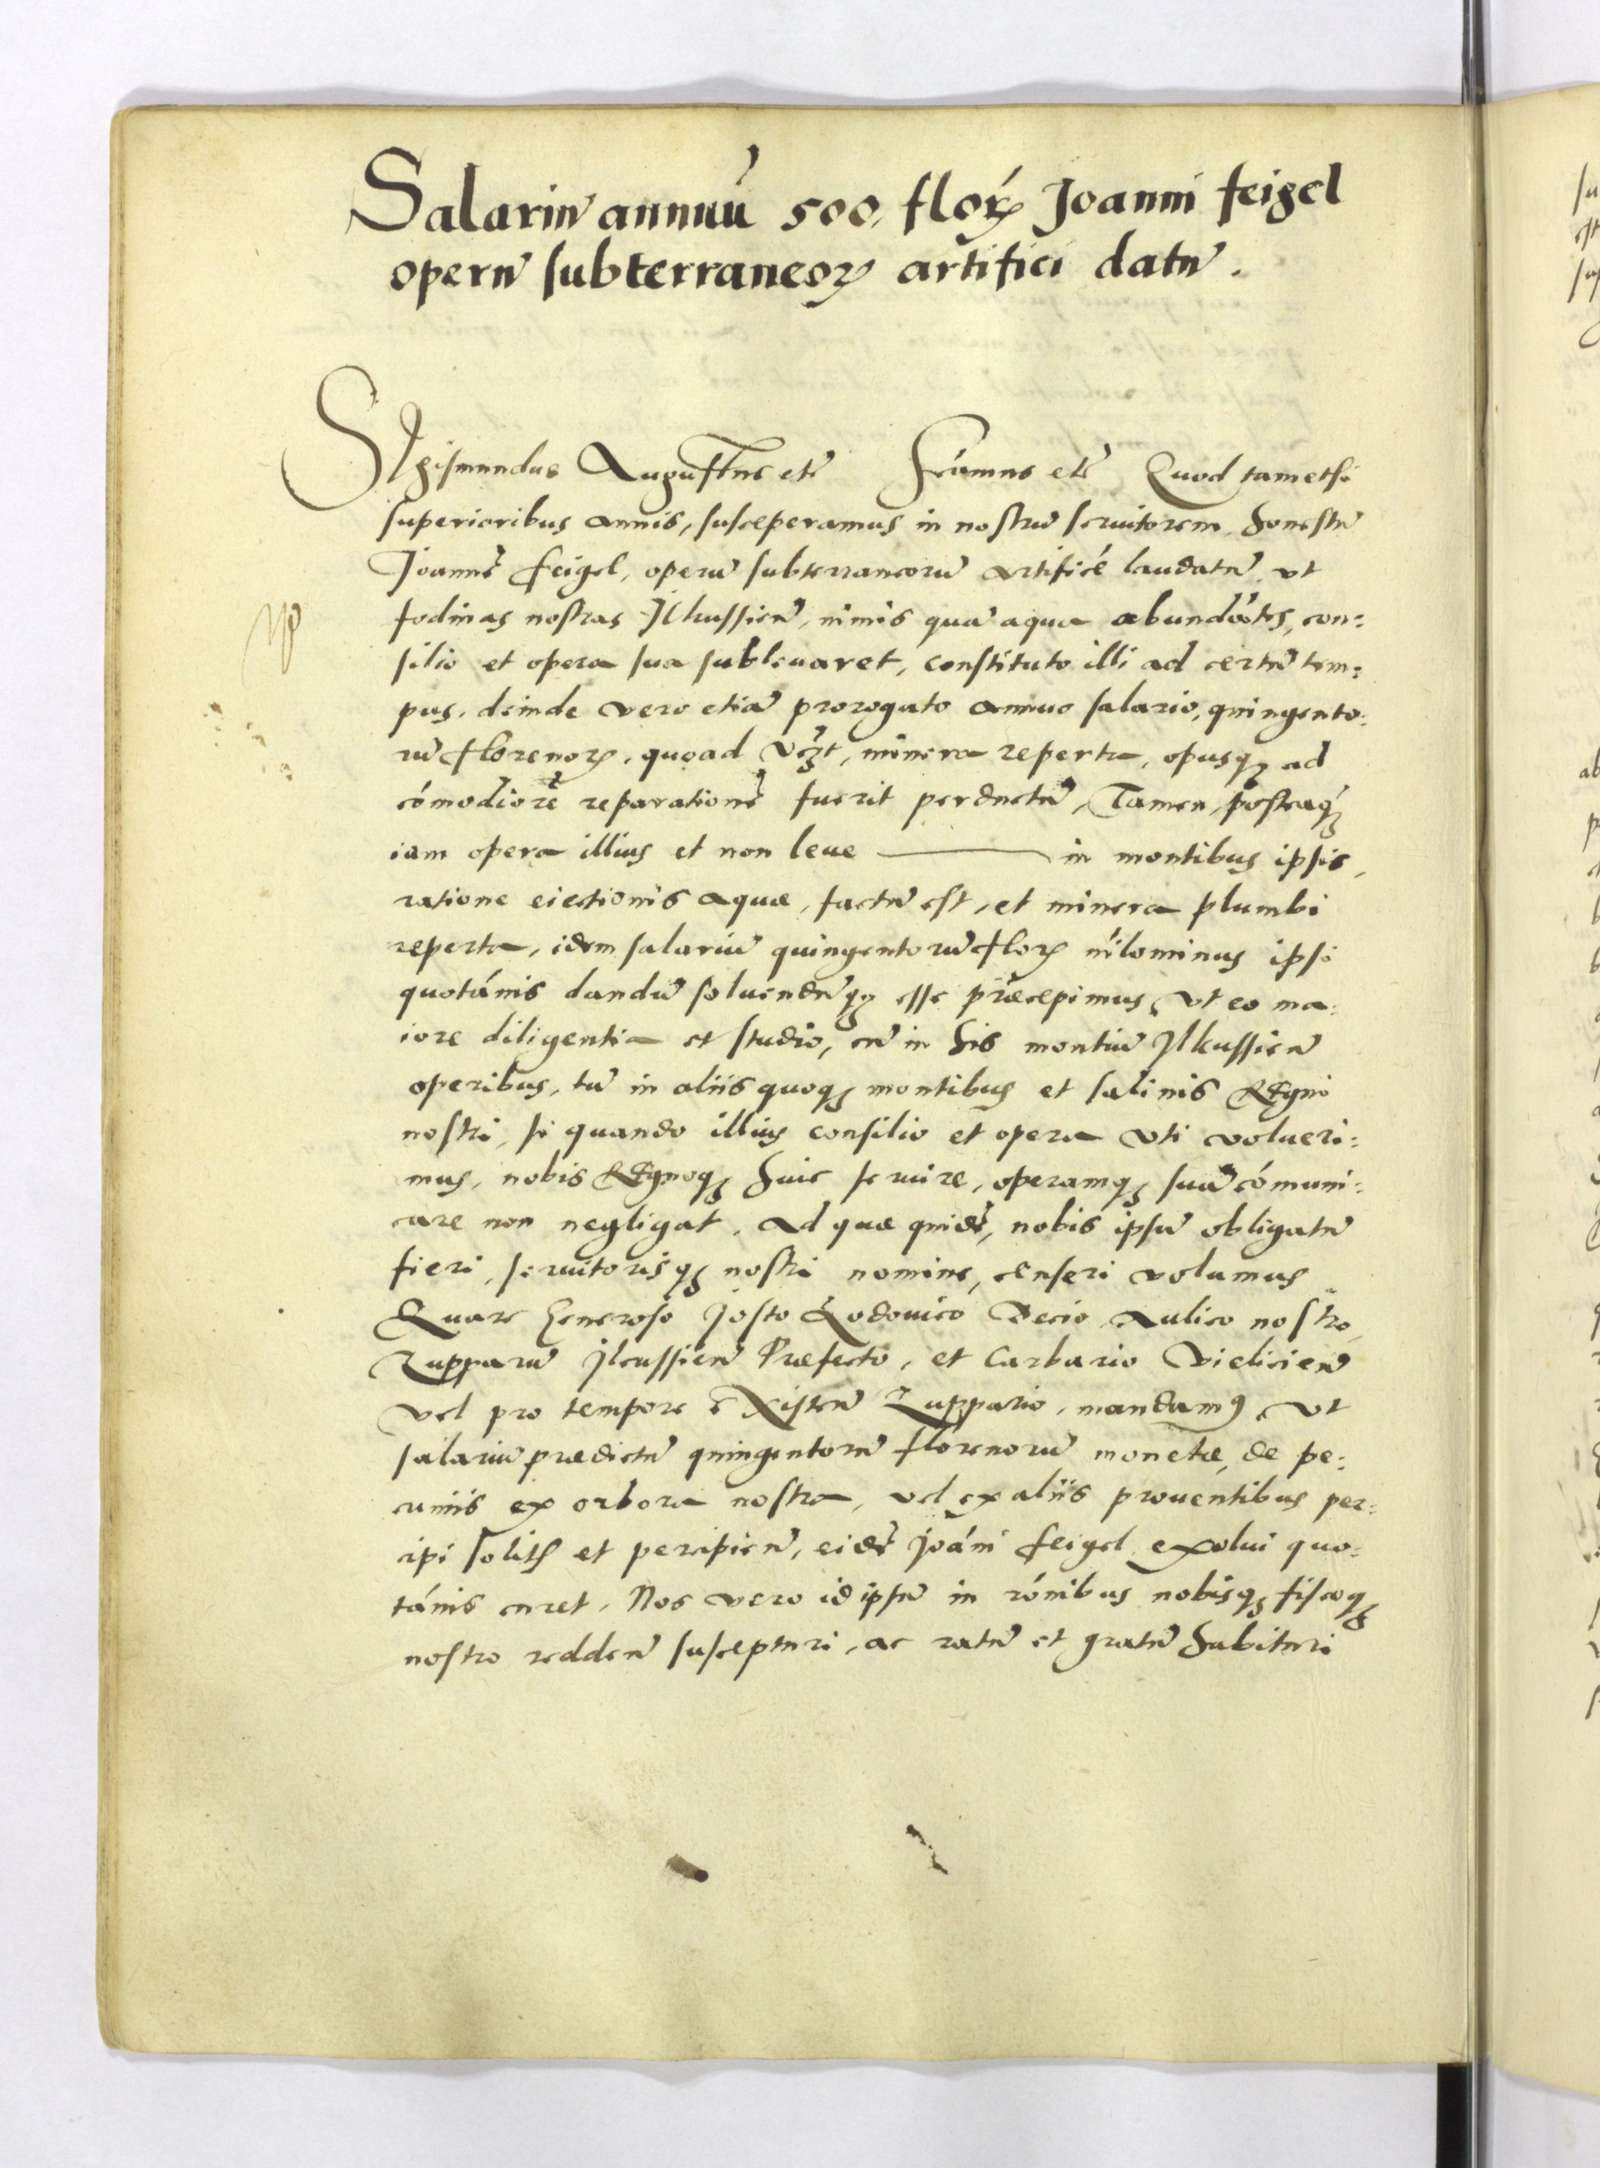 Salariū annuū 500. florꝝ Joanni feigel
operū subterraneoꝝ artifici datū.
Sigismundus Augustus etc̃ Sciamus etc̃ Quod tametsi
superioribus annis, susceperamus in nostrū seruitorem, honestū
Joannē Feigel, operū subterraneorū artificē laudatū, vt
fodinas nostras Jlkussien̄, nimis quā aqua abundātes, con:
silio et opera sua subleuaret, constituto illi ad certū tem:
pus, deinde vero etiā prorogato annuo salario, quingento:
rū florenoꝝ, quoad vꝫt, minera reperta, opusqꝫ ad
cōmodiorē reparationē fuerit perductū, Tamen, posteaqꝫ
iam opera illius et non leue in montibus ipsis,
ratione eiectionis aquæ, factū est, et minera plumbi
reperta, idem salariū quingentorū floꝝ nīlominus ipsi
quotānis dandū soluendūqꝫ esse præcepimus, vt eo ma:
iore diligentia et studio, cū in his montiū Jlkussien̄
operibus, tū in aliis quoqꝫ montibus et salinis Regni
nostri, si quando illius consilio et opera vti volueri:
mus, nobis Regnoqꝫ huic seruire, operamqꝫ suā cōmuni:
care non negligat. Ad quæ quidē, nobis ipsū obligatū
fieri, seruitorisqꝫ nostri nomine, censeri volumus
Quare Generoso Josto Lodouico Decio Aulico nostro,
Zupparū Jlcussien̄ Præfecto, et Carbario Vielicien̄
vel pro tempore existen̄ Zuppario, mandamꝰ, vt
salariū prædictū quingentorū florenorū monetæ, de pe:
cuniis ex orbora nostra, vel ex aliis prouentibus per:
cipi solitis et percipien̄, eidē Joāni Feigel exolui quo:
tānis curet. Nos vero id ipsū in rōnibus nobisqꝫ fiscoqꝫ
nostro redden̄ suscepturi, ac ratū et gratū habituri